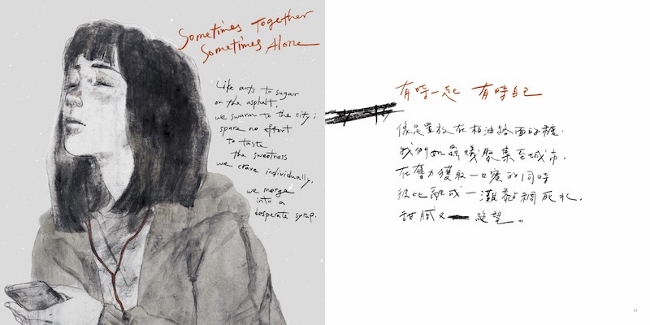 Sometimes Together
Sometimes Alone
Life acts to sugar
on the asphalt,
we swarm to the city;
spare no effort
to taste
the sweetness
we crave individually,
we merge
into a
desperate syrup.
有時一起 有時自己
像是置放在柏油路面的糖,
我們如螞蟻聚集至城市,
在奮力獲取一口蜜的同時
彼此融成一灘黏稠死水,
甜膩又絕望。